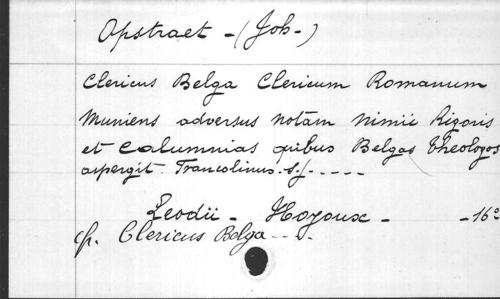 Opstraet - (Joh-)
Clericus Belga Clericum Romanum
Muniens adversus notam nimii Rigoris
et calumnias quibus Belgas Theologos
aspergit. Francolinus. S.J. - - - - -
Leodii - Hoyoux - - 16°
cf. Clericus Belga - - - .